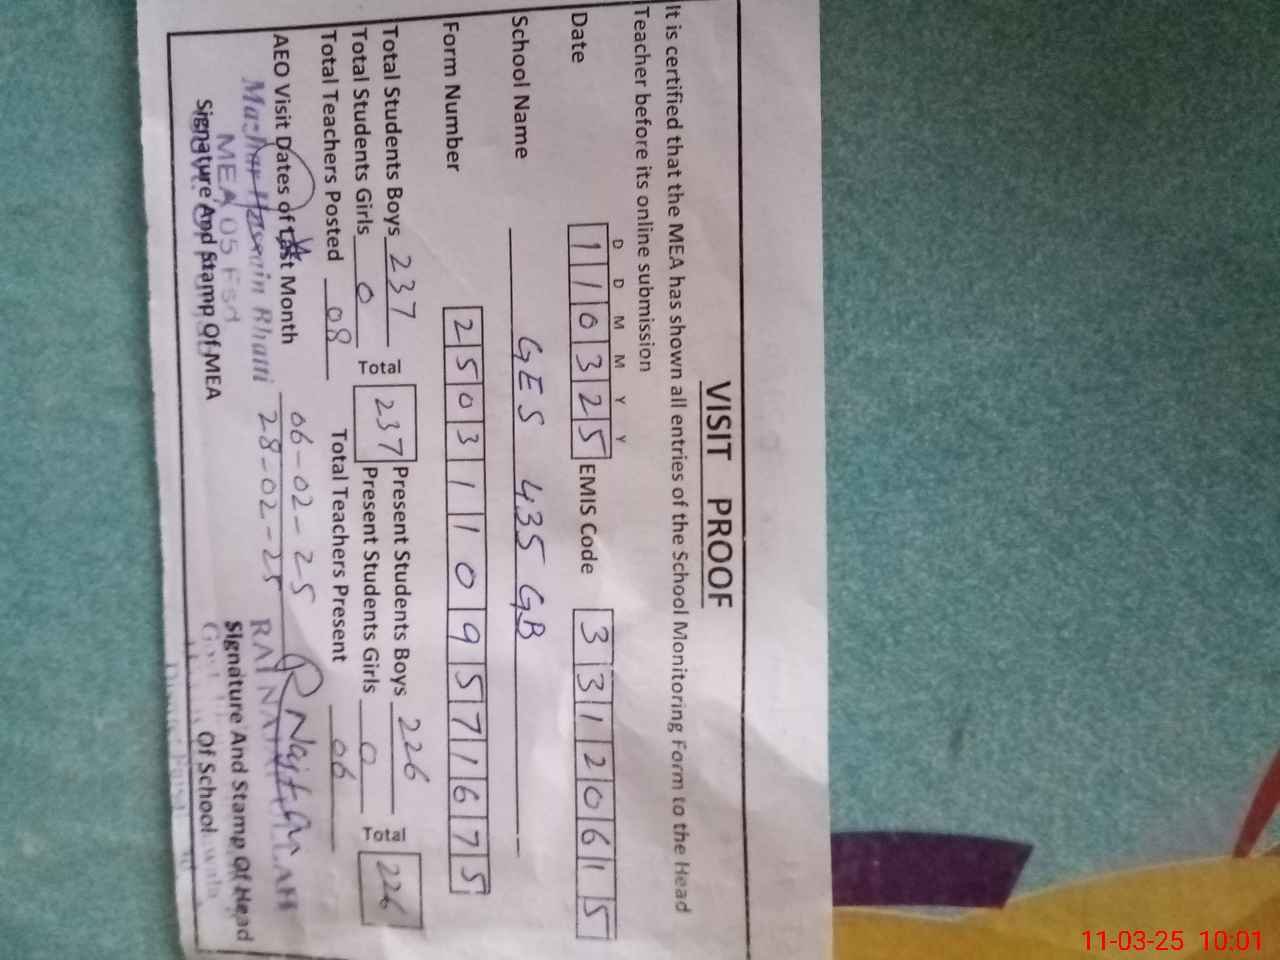 VISIT PROOF
It is certified that the MEA has shown all entries of the School Monitoring Form to the Head
Teacher before its online submission
D D M M Y Y
Date 1 1 0 3 2 5 EMIS Code 3 3 1 2 0 6 1 5
School Name GES 435 GB
Form Number 2 5 0 3 1 1 0 9 5 7 1 6 7 5
Total Students Boys 237 Total 237 Present Students Boys 226 Total 226
Total Students Girls 0 Present Students Girls 0
Total Teachers Posted 08 Total Teachers Present 06
AEO Visit Dates of Last Month 06-02-25
28-02-25
Mazhar Hussain Bhatti
MEA 05 Fsd
Signature And Stamp Of MEA
Signature And Stamp Of Head
Of School
11-03-25 10:01